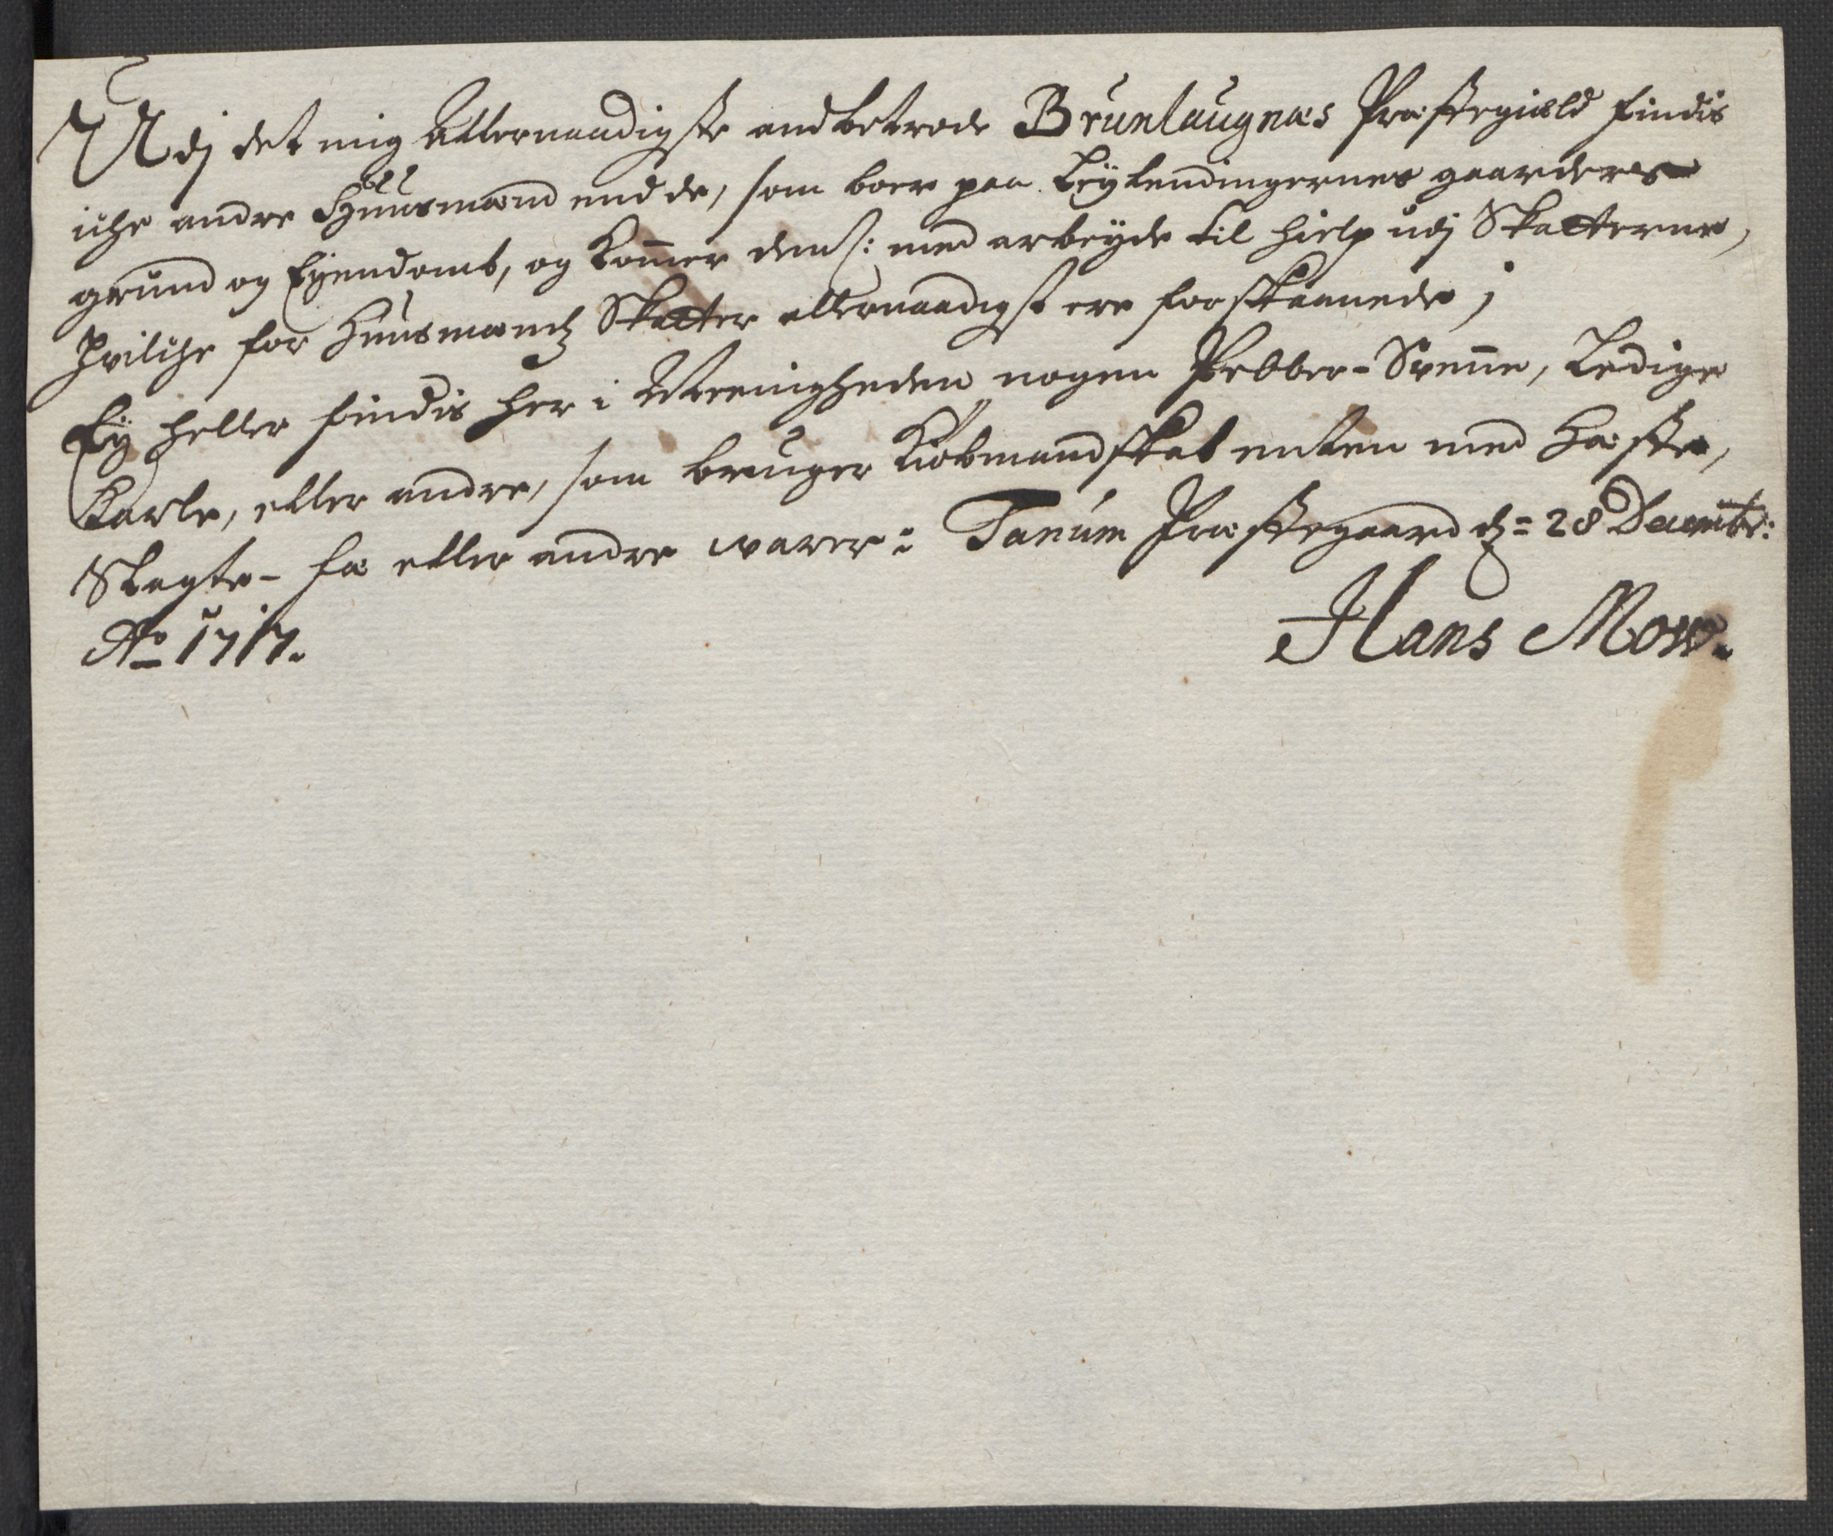 Udj det mig Allernaadigste andbetroede Brunlaugnæs Præstegiæld findis
iche andre Huusmænd end de, som boer paa Leylendingernes gaarderes
grund og Eyendomb, og kom̄er dem /: med arbeyde til hielp udj Skatterne,
hvilche for Huusmændz Skatter allernaadigst ere forskaanede;
Ey heller findis her i Meenigheden nogen Pebber-Svenne, Ledige
Karle, eller andre, som bruger Kiøbmandskab enten med Heste,
Slagte- fæ eller andre warer: Tanum Præstegaard dz = 28 Decembr:
Ao 1717.
Hans Mow.